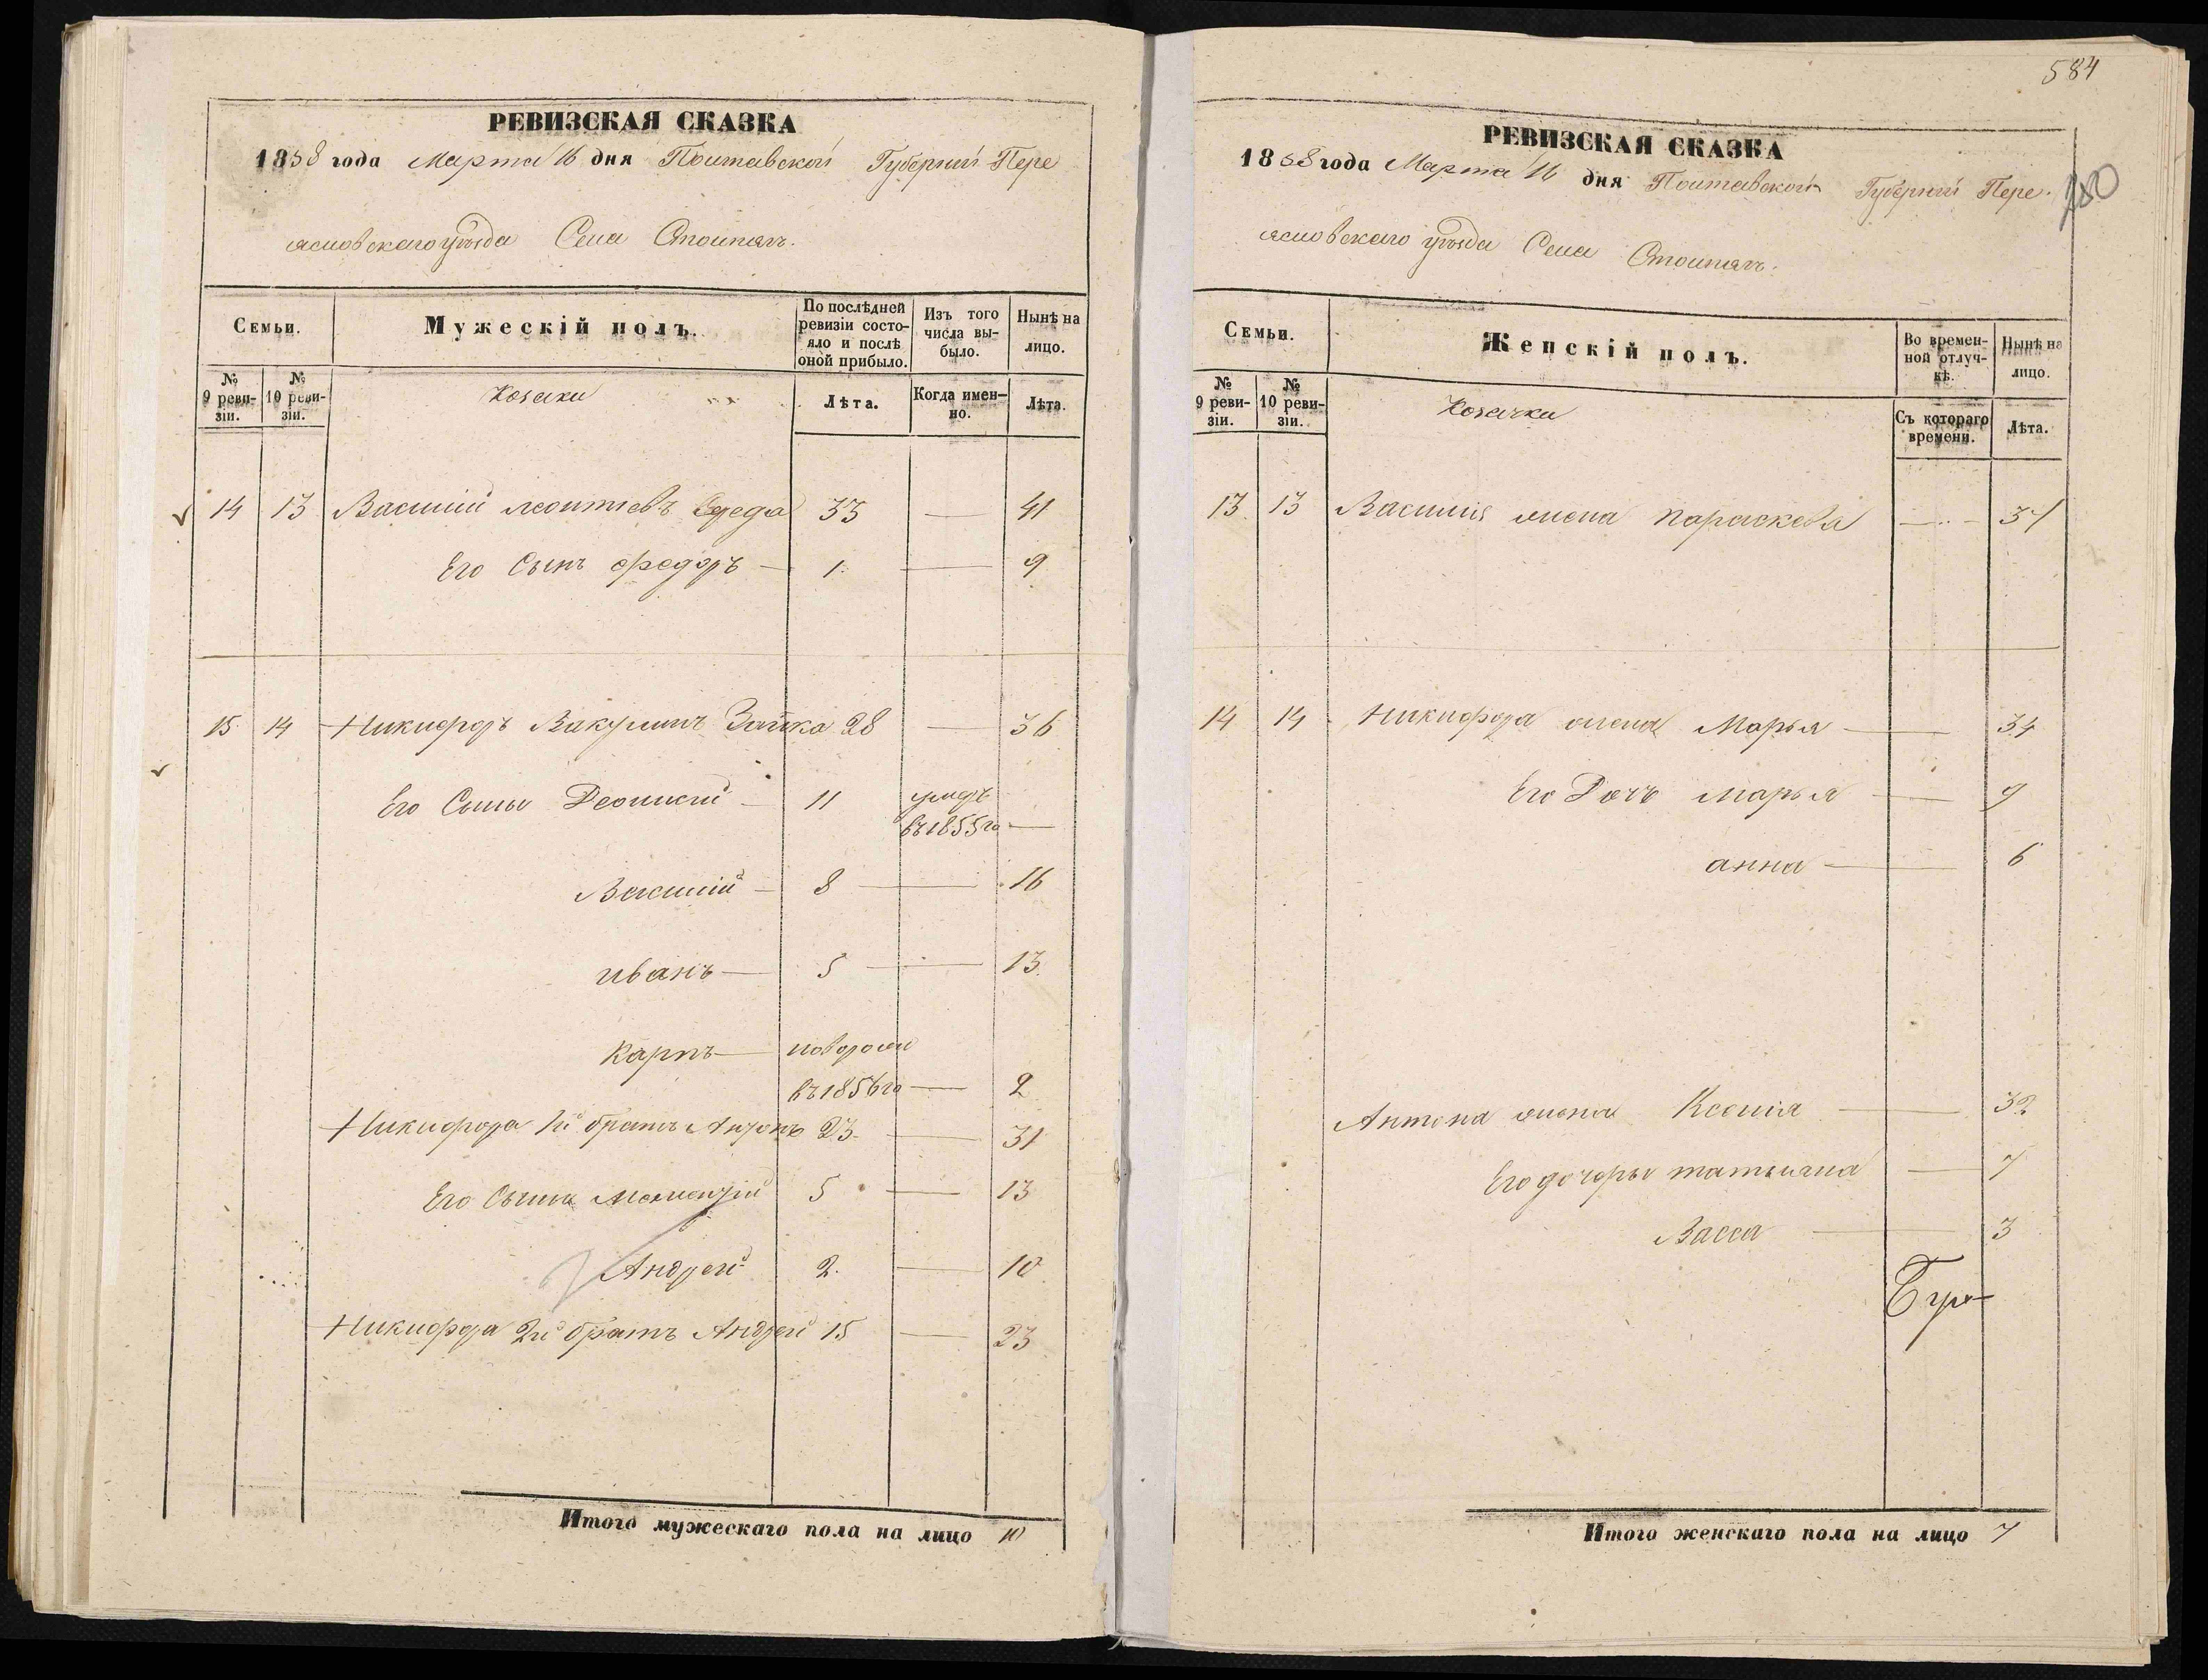 РЕВИЗСКАЯ СКАЗКА
1858 года Марта 16 дня Полтавской Губерніи Пере
яславскаго уѣзда Села Столпягъ.
Семьи. Мужескій полъ. По послѣдней ревизіи состояло и послѣ оной прибыло. Изъ того числа выбыло. Нынѣ на лицо.
№ 9 ревизіи. № 10 ревизіи. Козаки Лѣта. Когда именно. Лѣта.
14 13 Василій Леонтіевъ Середа 33 — 41
Его Сынъ Федоръ — 1 — 9
15 14 Никифоръ Вакулинъ Заика 28 — 36
Его Сыны Леонтій — 11 умеръ
въ 1855 го —
Василій — 8 — 16
иванъ — 5 — 13
Карпъ — новорож
въ 1856 го — 2
Никифора 1й братъ Антонъ 23 — 31
Его Сыны 5 — 13
Андрей 2 — 10
Никифора 2й братъ Андрей 15 — 23
Итого мужескаго пола на лицо 10
584
280
РЕВИЗСКАЯ СКАЗКА
1858 года Марта 16 дня Полтавской Губерніи Пере
яславскаго уѣзда Села Столпягъ.
Семьи. Женскій полъ. Во временной отлучкѣ. Нынѣ на лицо.
№ 9 ревизіи. № 10 ревизіи. Козачки Съ котораго времени. Лѣта.
13 13 Василія жена Параскева — 37
14 14 Никифора жена Марья — 34
Его Дочь Марья — 9
анна — 6
Антона жена Ксенія — 32
Его дочери татьяна — 7
Васса — 3
Итого женскаго пола на лицо 7